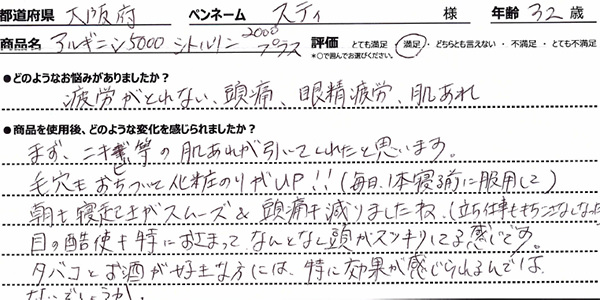 都道府県 大阪府 ペンネーム スティ 様 年齢 32 歳
商品名 アルギニン5000 シトルリン2000プラス 評価 とても満足・満足・どちらとも言えない・不満足・とても不満足
*○で囲んでお選びください。
●どのようなお悩みがありましたか?
疲労がとれない、頭痛、眼精疲労、肌あれ
●商品を使用後、どのような変化を感じられましたか?
まず、ニキビ等の肌あれが引いてくれたと思います。
毛穴もおちついて化粧のりがUP!!(毎日、1本寝る前に服用して)
朝も寝起きがスムーズ&頭痛も減りましたね、(立ち仕事も
目の酷使も特におさまって なんとなし頭がスッキリしてる感じです。
タバコとお酒が好きな方には、特に効果が感じられるんでは
ないでしょうか。